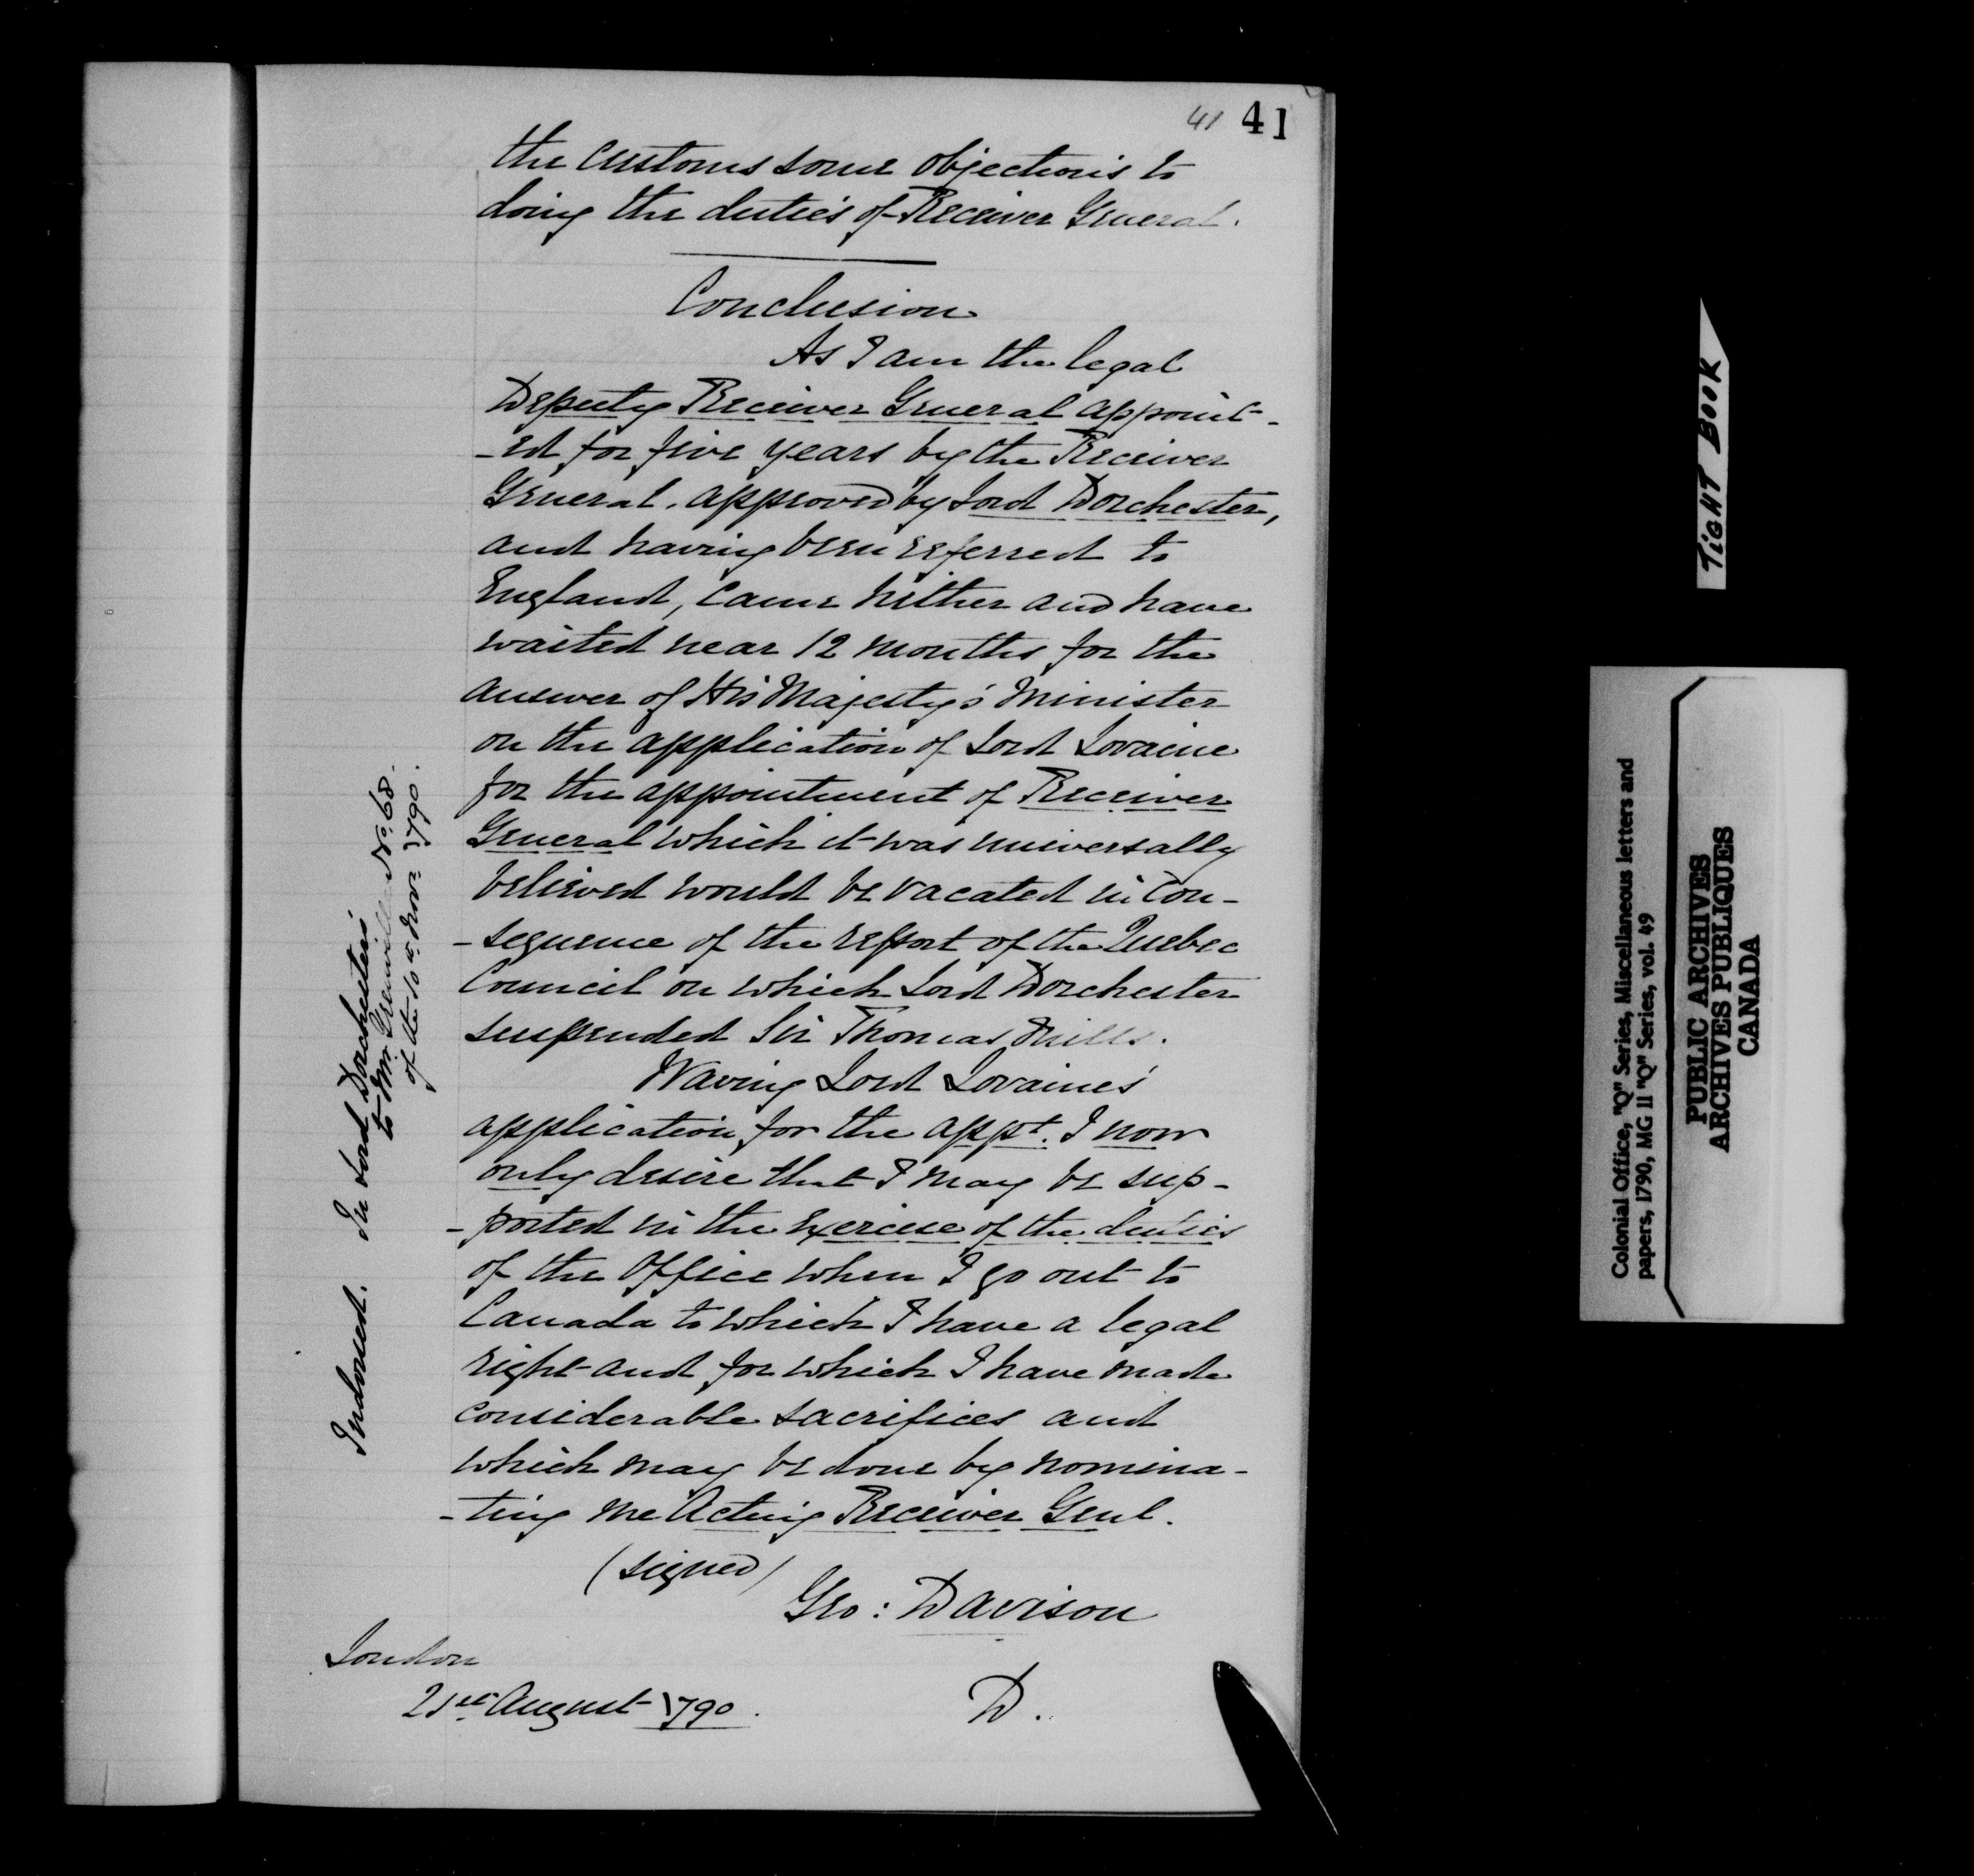 41 41
the Customs some objections to
doing the duties of Receiver General.
Conclusion
As I am the legal
Deputy Receiver General appoint-
-ed for five years by the Receiver
General, approved by Lord Dorchester,
and having been referred to
England, came hither and have
waited near 12 months for the
answer of His Majesty's Minister
on the application of Lord Lovaine
for the appointment of Receiver
General which it was universally
believed would be vacated in con-
-sequence of the report of the Quebec
Council on which Lord Dorchester
suspended Sir Thomas Mills.
Waving Lord Lovaine's
application for the appt. I now
only desire that I may be sup-
-ported in the exercise of the duties
of the Office when I go out to
Canada to which I have a legal
right and for which I have made
considerable sacrifices and
which may be done by nomina-
-ting me Acting Receiver Genl.
(signed)
Geo: Davison
London
21st August 1790.
D.
Indorsed. In Lord Dorchester's
to Mr. Grenville No. 68.
of the 10th Novr. 1790.
TIGHT BOOK
Colonial Office, "Q" Series, Miscellaneous letters and
papers, 1790, MG 11 "Q" Series, vol. 49
PUBLIC ARCHIVES
ARCHIVES PUBLIQUES
CANADA